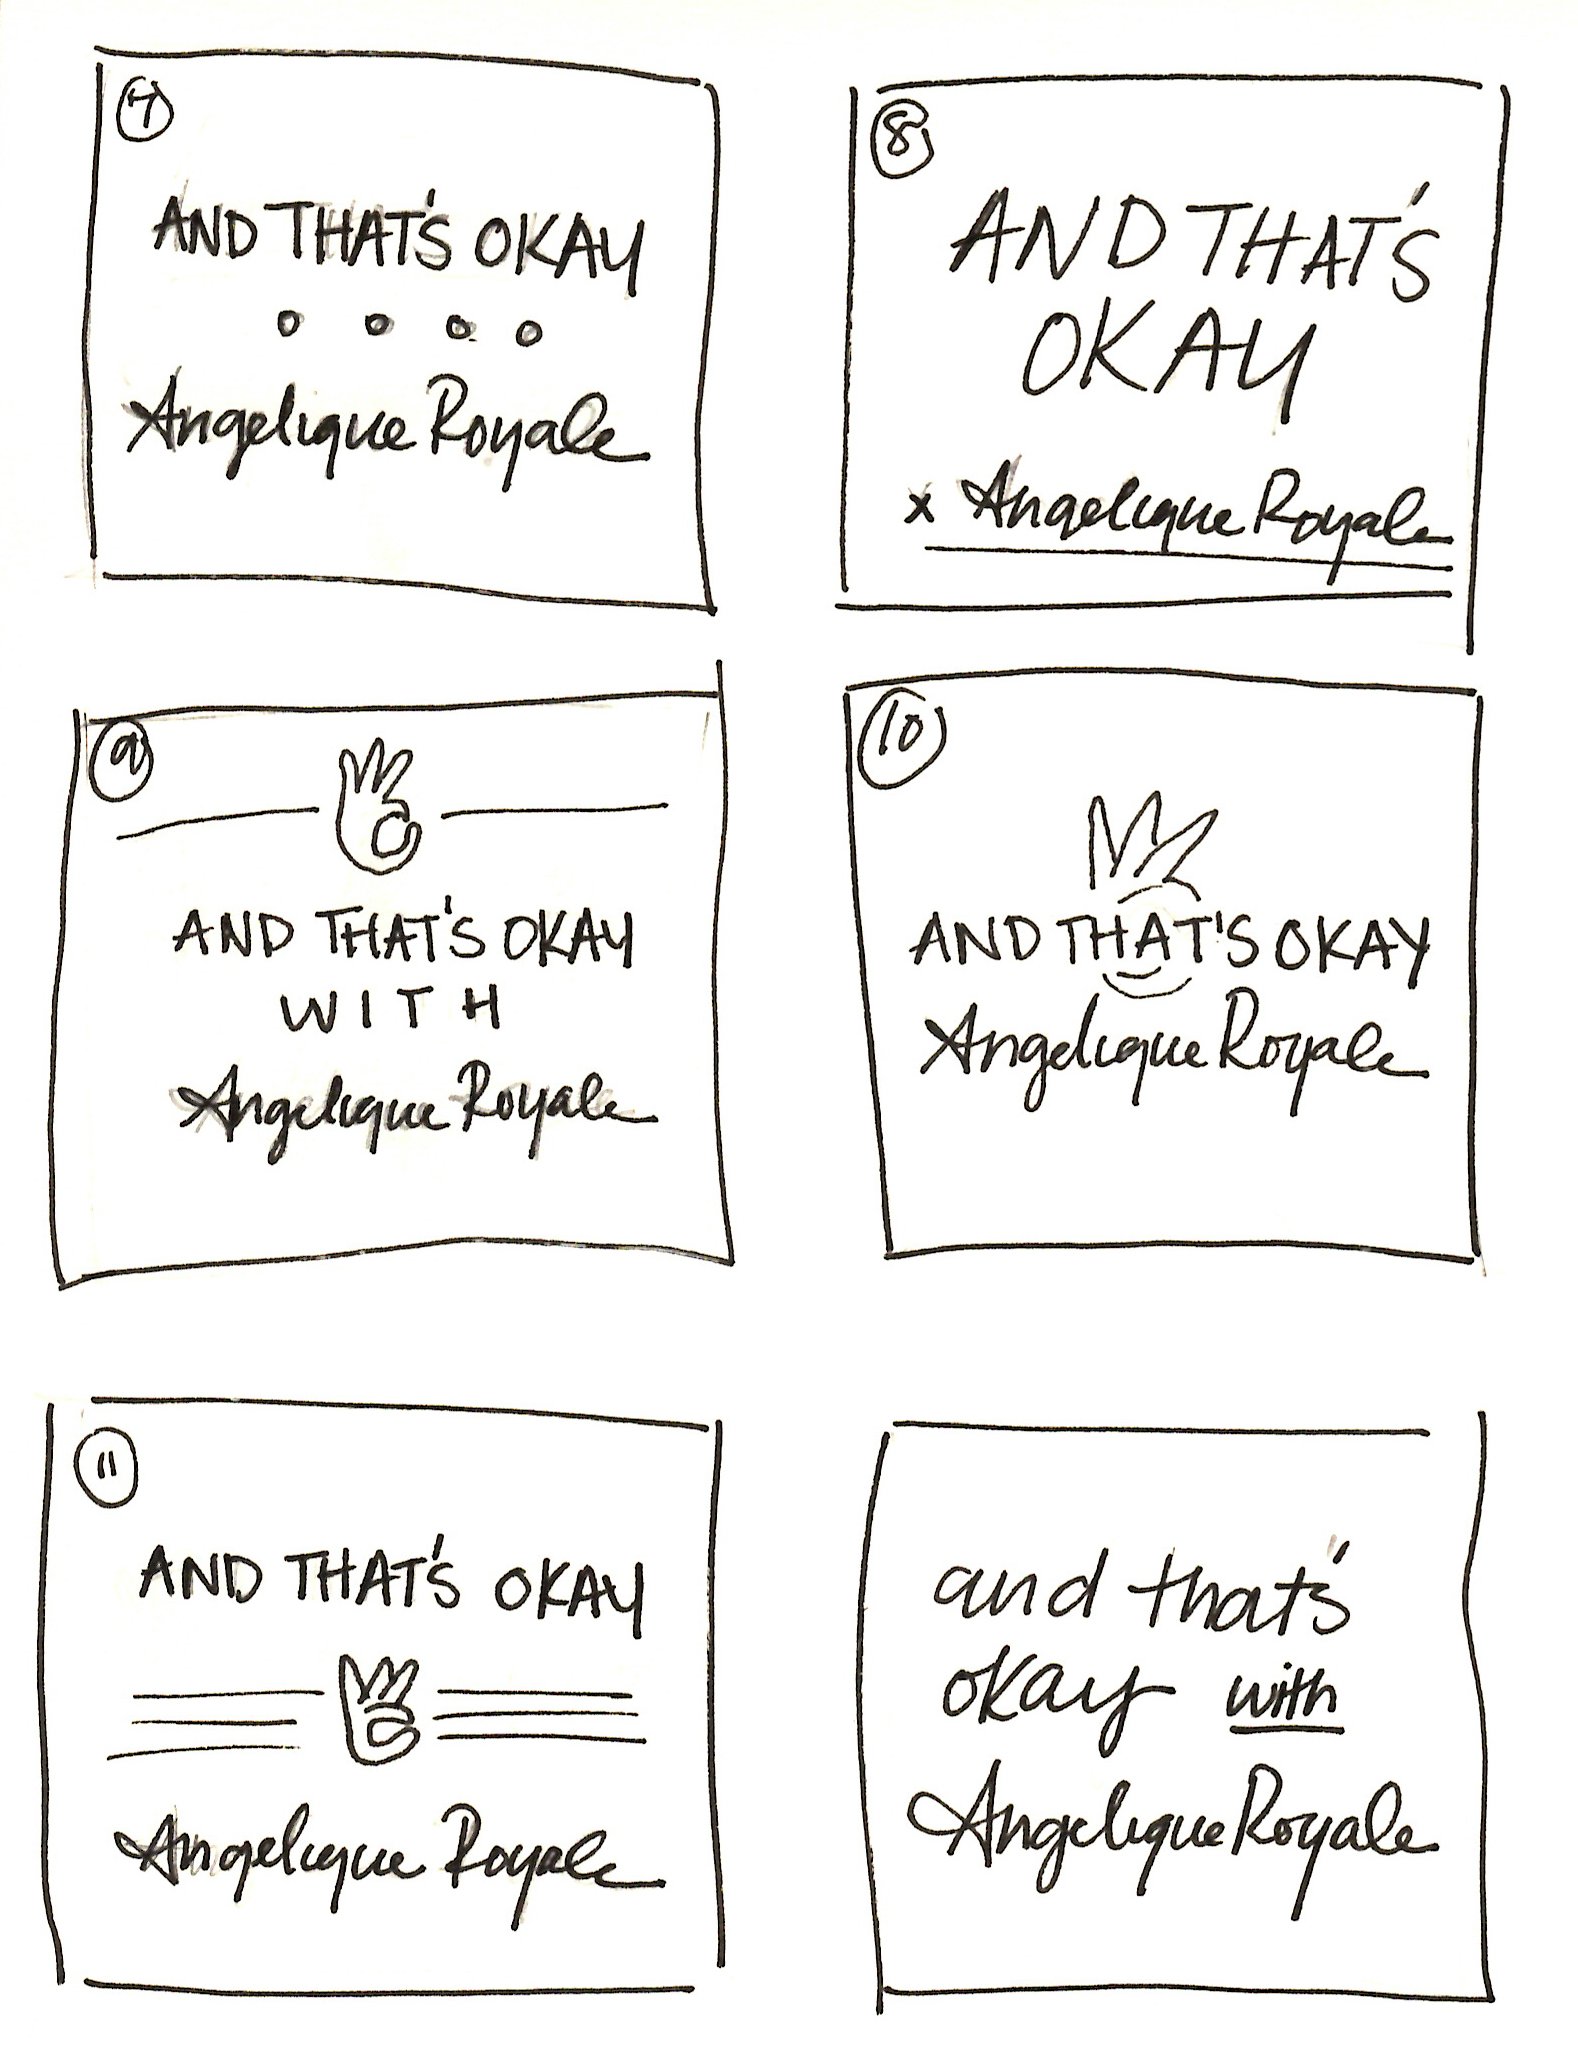 7
AND THAT'S OKAY
Angelique Royale
8
AND THAT'S
OKAY
x Angelique Royale
9
AND THAT'S OKAY
WITH
Angelique Royale
10
AND THAT'S OKAY
Angelique Royale
11
AND THAT'S OKAY
Angelique Royale
and that's
okay with
Angelique Royale